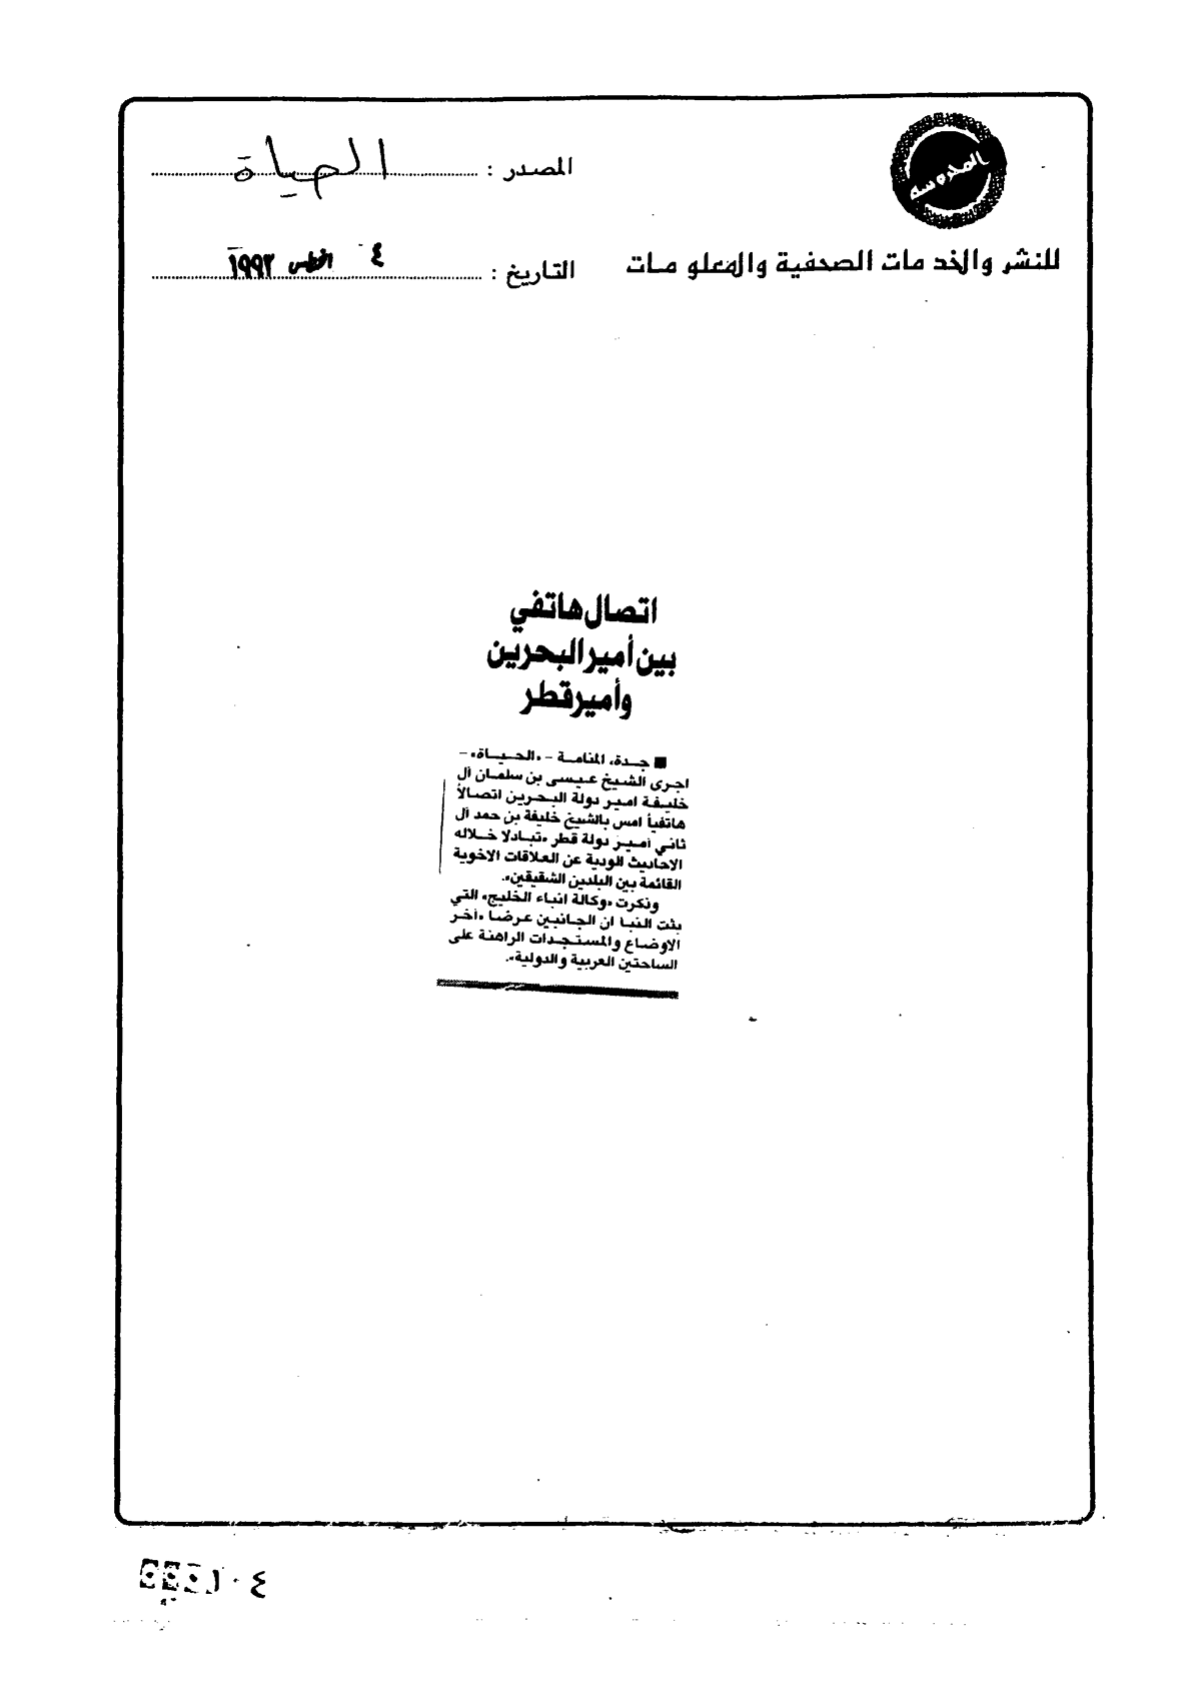 المحروسة
المصدر : الحياة
للنشر والخدمات الصحفية والمعلومات
التاريخ : ٤ اغطس ١٩٩٢
اتصال هاتفي
بين أمير البحرين
وأمير قطر
■ جدة، المنامة - «الحياة» -
اجرى الشيخ عيسى بن سلمان آل
خليفة امير دولة البحرين اتصالاً
هاتفياً امس بالشيخ خليفة بن حمد آل
ثاني أمير دولة قطر «تبادلا خلاله
الاحاديث الودية عن العلاقات الاخوية
القائمة بين البلدين الشقيقين».
وذكرت «وكالة انباء الخليج» التي
بثت النبا ان الجانبين عرضا «آخر
الاوضاع والمستجدات الراهنة على
الساحتين العربية والدولية».